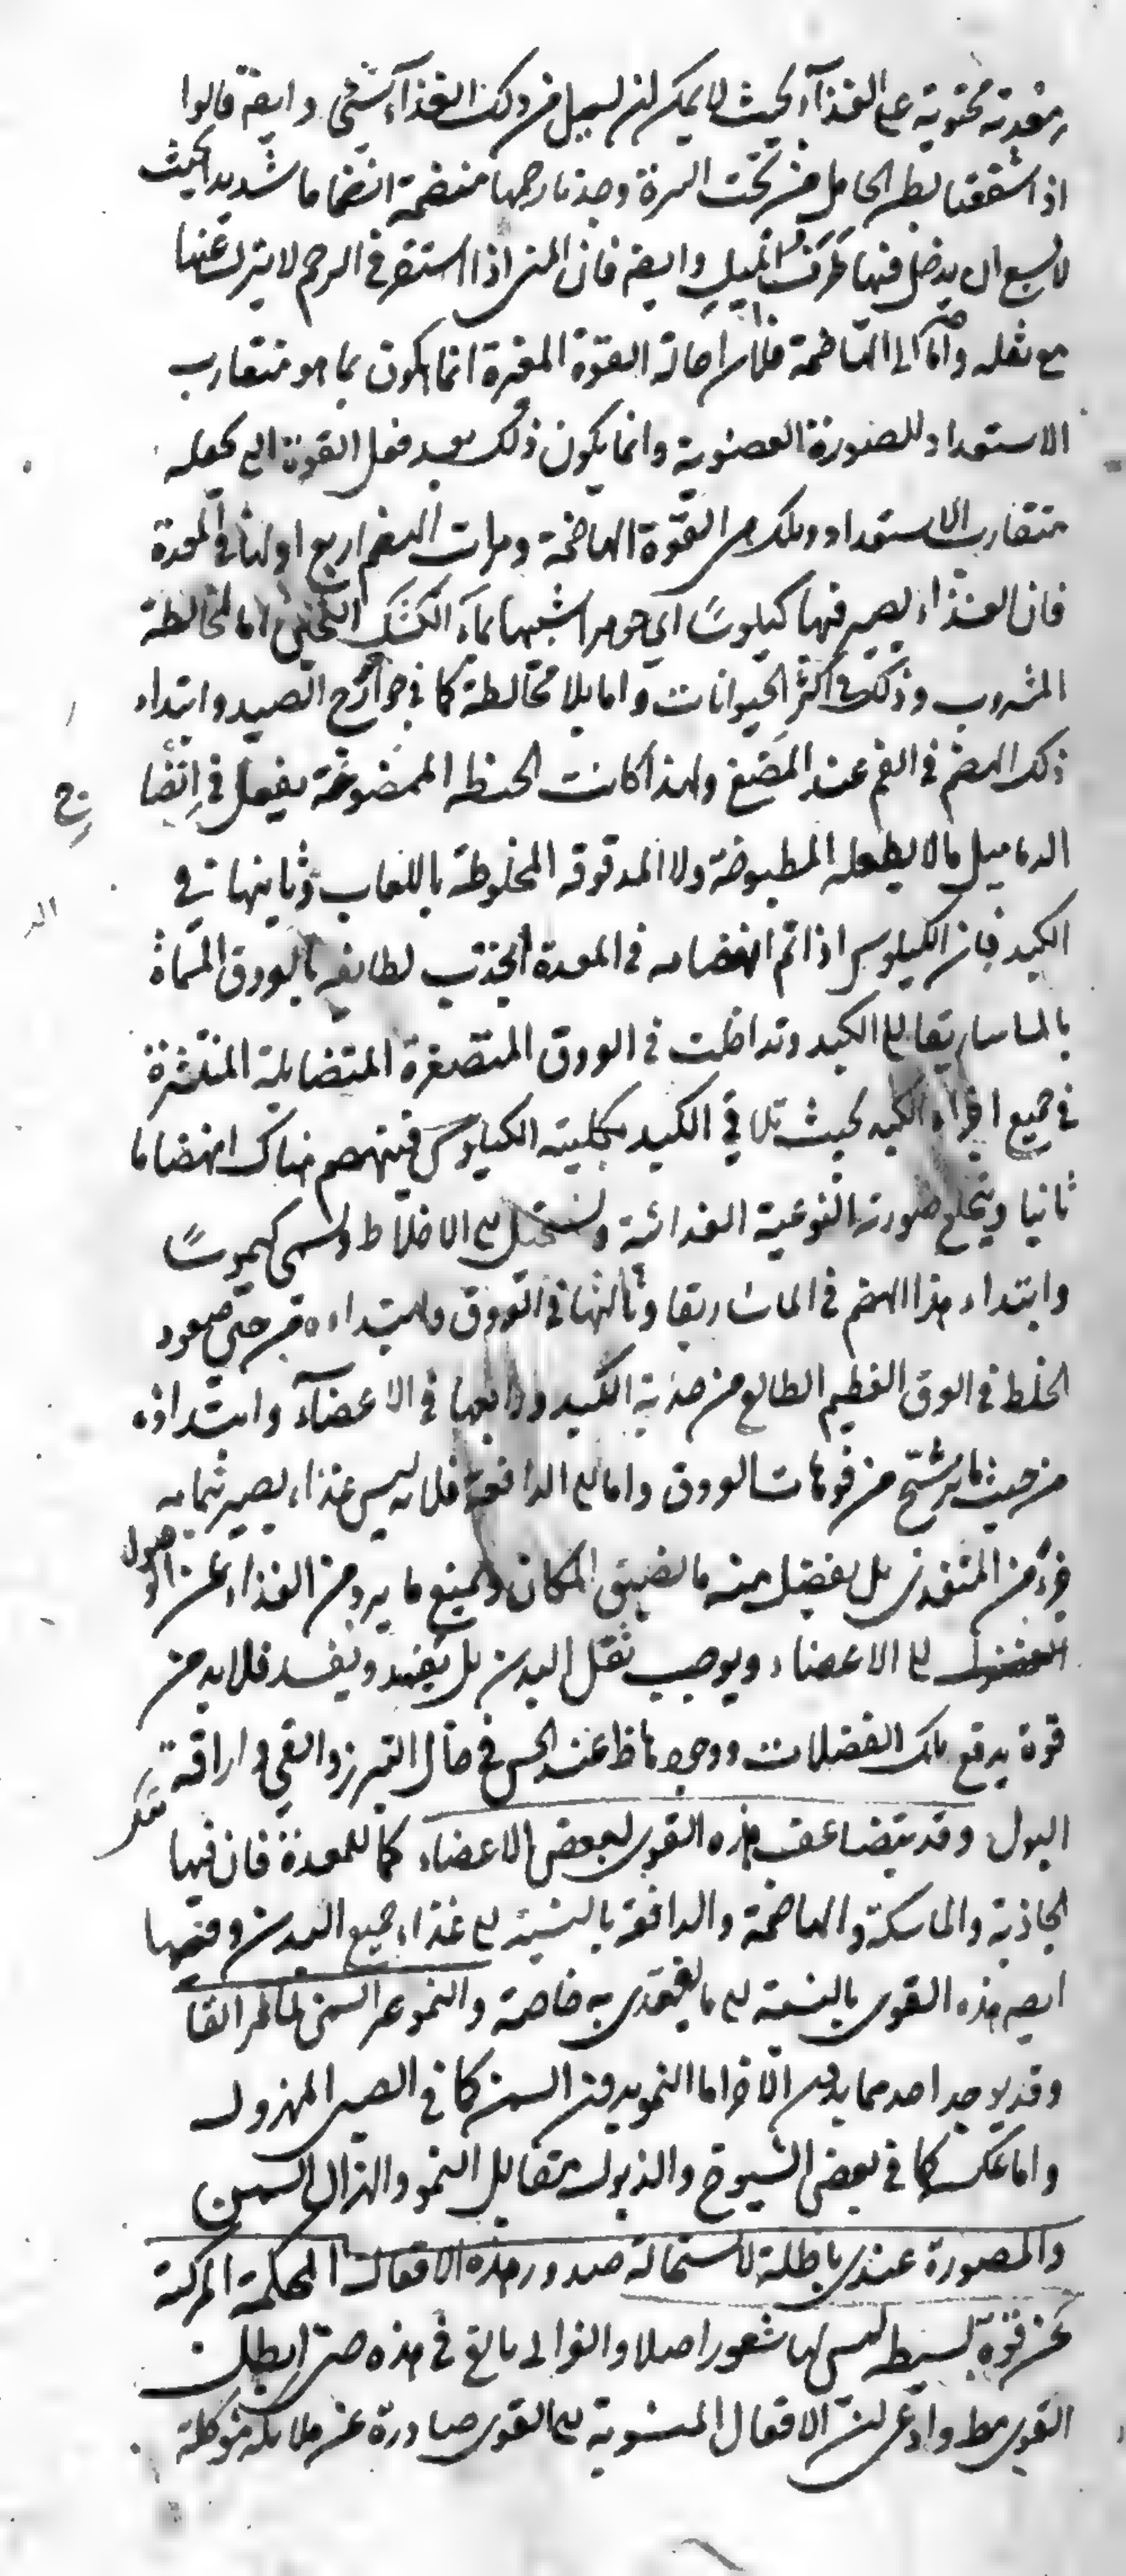 معدته محتوية على الغذاء بحيث لا يمكن ان يسيل من ذلك الغذاء شئ وايضه قالوا
اذا شققنا بطن الحامل من تحت السرة وجدنا رحمها منضمة انضماما شديدا بحيث
لا يسع ان يدخل فيها طرف الميل وايضه فان المنى اذا استقر فى الرحم لا ينزل عنها
مع ثقله واما الى الهاضمة فلان احالة القوة المغيرة انما يكون بما هو متقارب
الاستعداد للصورة العضوية وانما يكون ذلك بعد فعل القوة التى تجعله
متقارب الاستعداد وتلك هى القوة الهاضمة ومراتب الهضم اربع اولها فى المعدة
فان الغذاء يصير فيها كيلوسًا اى جوهرا شبيها بماء الكشك الثخين اما بمخالطة
المشروب وذلك فى اكثر الحيوانات واما بلا مخالطة كما فى جوارح الصيد وابتداء
ذلك الهضم فى الفم عند المضغ ولهذا كانت الحنطه الممضوغة يفعل فى انضا
ج
الدماميل ما لا يفعله المطبوخة ولا المدقوقه المخلوطة باللعاب وثانيها فى
الكبد فان الكيلوس اذا تم انهضامه فى المعدة انجذب لطايفه بالعروق المسماة
بالماساريقا الى الكبد وتداخلت فى العروق المتصغرة المتضايلة المنتشرة
فى جميع اجزاء الكبد بحيث تلاقى الكبد بكليته الكيلوس فينهضم هناك انهضاما
ثانيا وينخلع صورته النوعية الغدائية ويستحيل الى الاخلاط ويسمى كيموسًا
وابتداء هذا الهضم فى الماساريقا وثالثها فى العروق وابتداءه من حين صعود
الخلط فى العرق العظيم الطالع من حدبة الكبد ورابعها فى الاعضاء وابتداؤه
من حيث ما ترشح من فوهات العروق واما الى الدافعة فلانه ليس غذاء يصير بتمامه
جزء من المغتذى بل يفضل منه ما يضيق المكان ويمنع ما يرد من الغذاء عن الوصول
الى الاعضاء ويوجب ثقل البدن بل يفسد ويفسد فلابد من
قوة يدفع تلك الفضلات ووجودها ظ عند الحس فى حال التبرز والقى واراقة
البول وقد يتضاعف هذه القوى لبعض الاعضاء كما للمعدة فان فيها
الجاذبة والماسكة والهاضمة والدافعة بالنسبة الى غذاء جميع البدن وفيها
ايضه هذه القوى بالنسبة الى ما يغتذى به خاصة والنمو غير السمن لما ظهر انفا
وقد يوجد احدهما بدون الاخر اما النمو بدون السمن كما فى الصبى المهزول
واما عكسه كما فى بعض الشيوخ والذبول يقابل النمو والهزال السمن
والمصورة عندى باطلة لاستحالة صدور هذه الافعال المحكمة المركبة
عن قوة بسيطه ليس لها شعور اصلا والغزالى بالغ فى هذه حتى ابطل
القوى مط وادعى ان الافعال المنسوبة الى القوى صادرة عن ملائكة موكلة